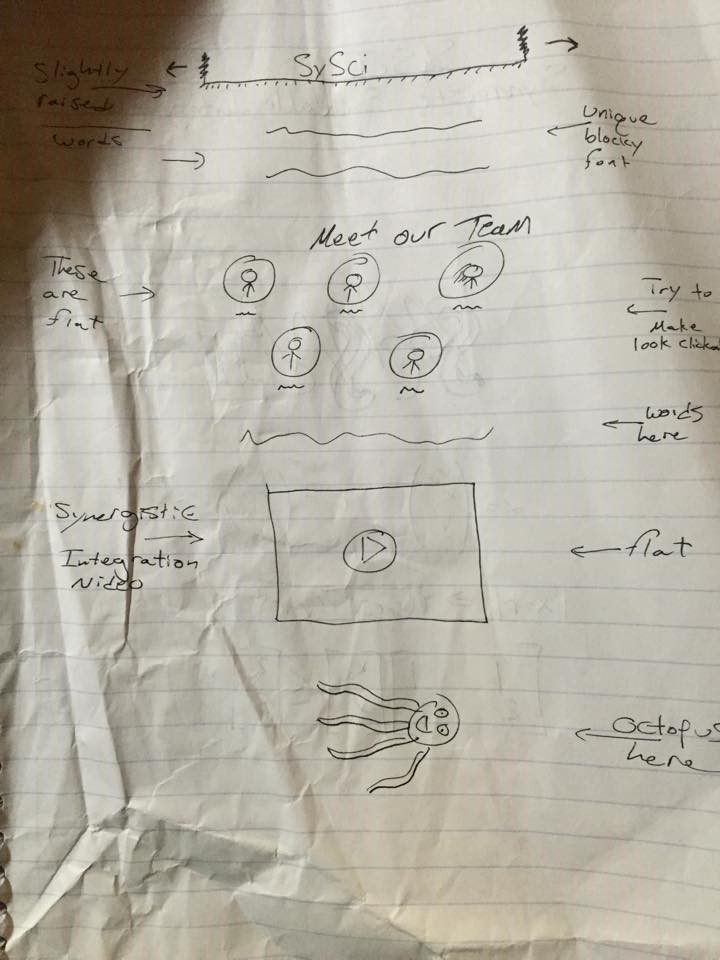 SySci
Slightly
raised
words
Unique
blocky
font
Meet our Team
These
are
flat
Try to
Make
look clicka
words
here
Synergistic
Integration
Video
flat
Octopus
here